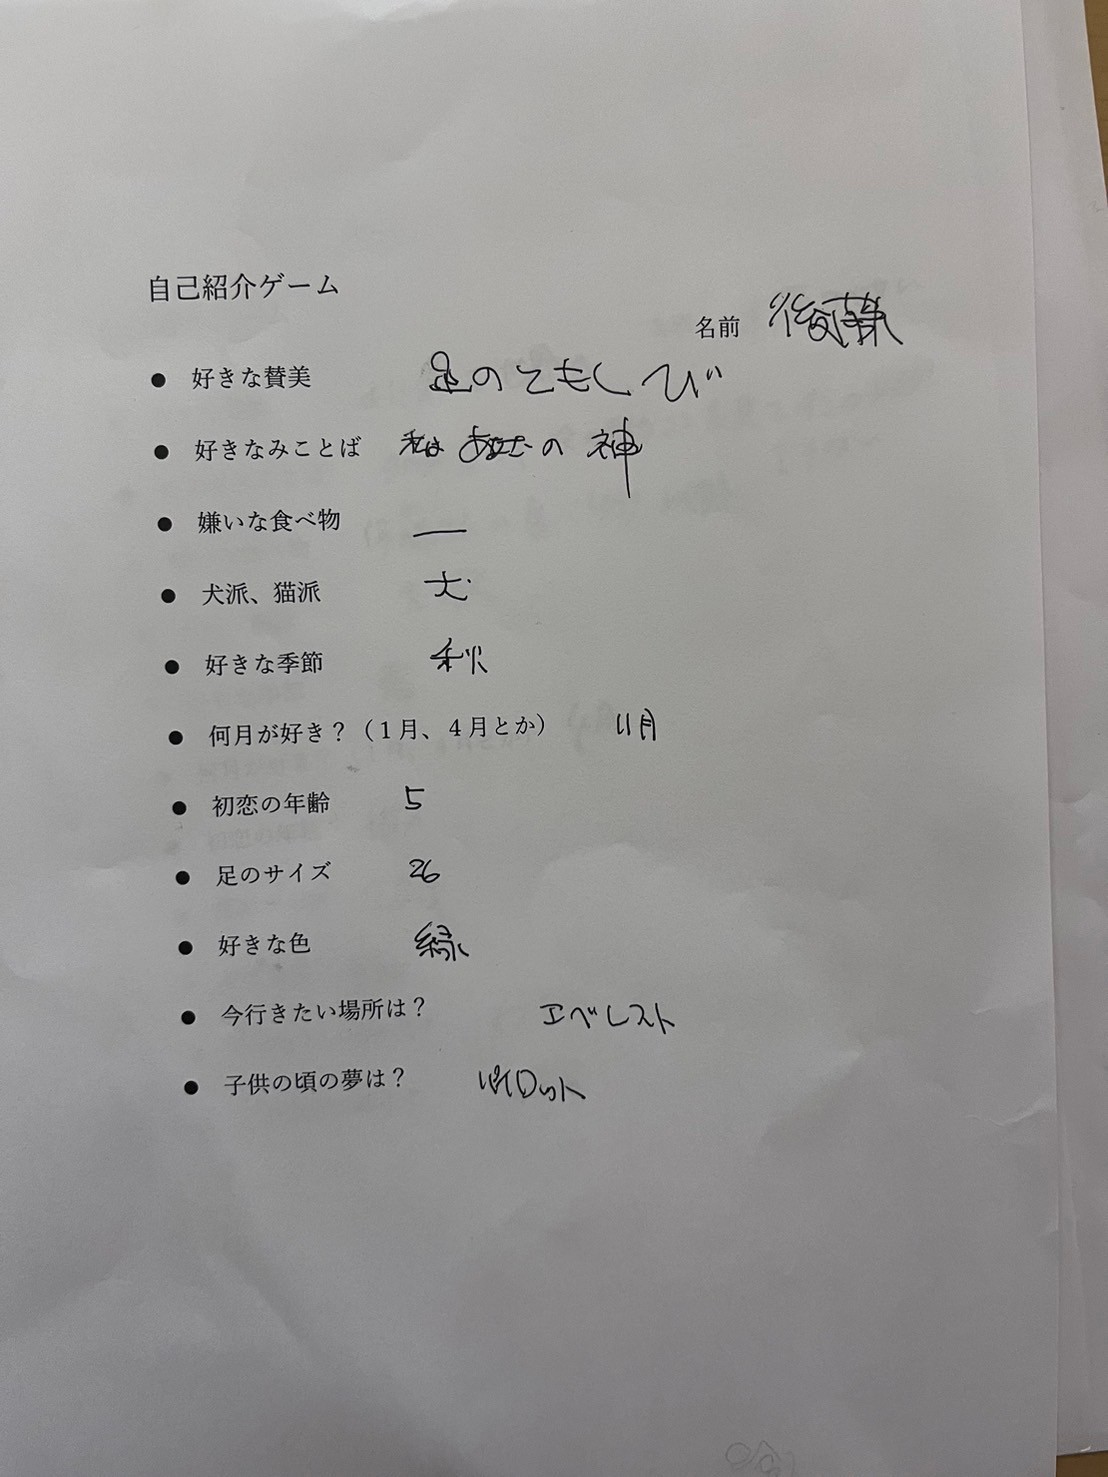 自己紹介ゲーム
名前 後藤
● 好きな賛美 足のともしび
● 好きなみことば 私は あなたの 神
● 嫌いな食べ物 ―
● 犬派、猫派 犬
● 好きな季節 秋
● 何月が好き？（１月、４月とか） 11月
● 初恋の年齢 5
● 足のサイズ 26
● 好きな色 緑
● 今行きたい場所は？ エベレスト
● 子供の頃の夢は？ パイロット